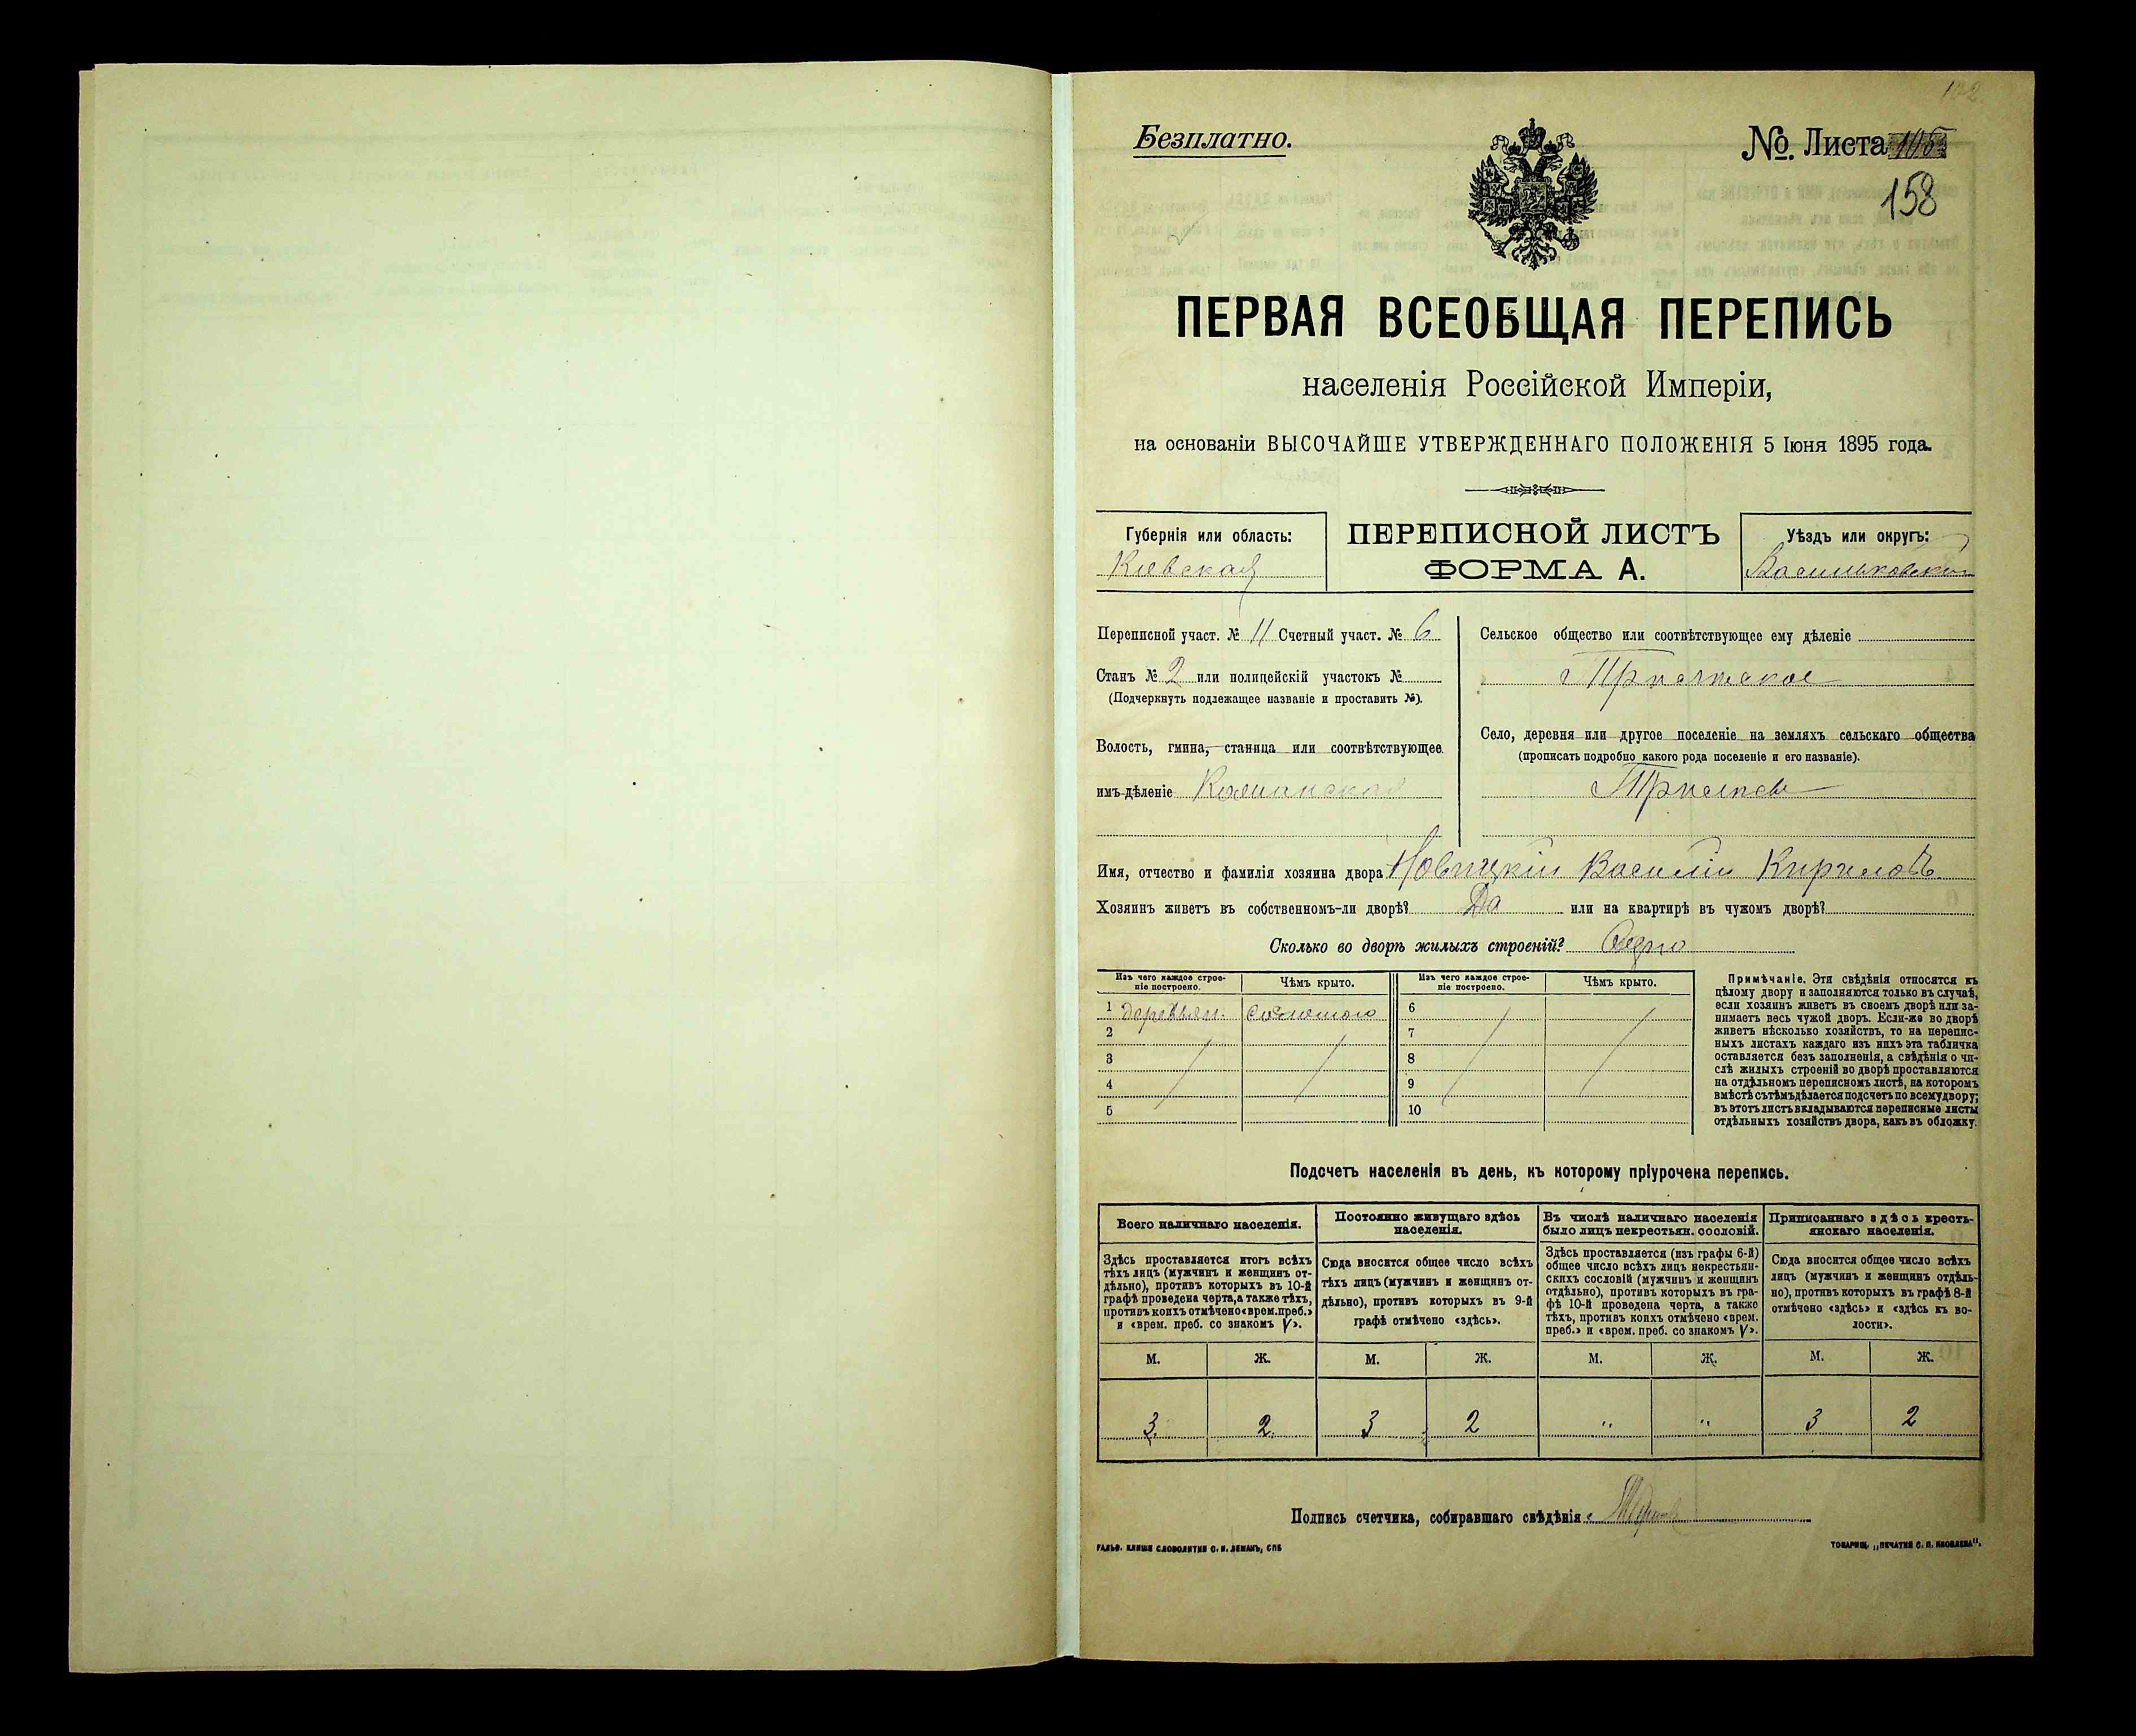 102.
Безплатно.
№ Листа 105
158
ПЕРВАЯ ВСЕОБЩАЯ ПЕРЕПИСЬ
населенія Россійской Имперіи,
на основаніи ВЫСОЧАЙШЕ УТВЕРЖДЕННАГО ПОЛОЖЕНІЯ 5 Іюня 1895 года.
Губернія или область:
Кіевская
ПЕРЕПИСНОЙ ЛИСТЪ
ФОРМА А.
Уѣздъ или округъ:
Васильковскій
Переписной участ. № 11 Счетный участ. № 6
Станъ № 2 или полицейскій участокъ №
(Подчеркнуть подлежащее названіе и проставить №).
Волость, гмина, станица или соотвѣтствующее
имъ дѣленіе Кошанская
Сельское общество или соотвѣтствующее ему дѣленіе
Село, деревня или другое поселеніе на земляхъ сельскаго общества
(прописать подробно какого рода поселеніе и его названіе).
Имя, отчество и фамилія хозяина двора Новицкій Василій Кириловъ
Хозяинъ живетъ въ собственномъ-ли дворѣ? Да или на квартирѣ въ чужомъ дворѣ?
Сколько во дворѣ жилыхъ строеній? Одно
Изъ чего каждое строе-
ніе построено.
Чѣмъ крыто.
Изъ чего каждое строе-
ніе построено.
Чѣмъ крыто.
1 деревян. соломою 6
2 7
3 8
4 9
5 10
Примѣчаніе. Эти свѣдѣнія относятся къ
цѣлому двору и заполняются только въ случаѣ,
если хозяинъ живетъ въ своемъ дворѣ или за-
нимаетъ весь чужой дворъ. Если-же во дворѣ
живетъ нѣсколько хозяйствъ, то на перепис-
ныхъ листахъ каждаго изъ нихъ эта табличка
оставляется безъ заполненія, а свѣдѣнія о чи-
слѣ жилыхъ строеній во дворѣ проставляются
на отдѣльномъ переписномъ листѣ, на которомъ
вмѣстѣ съ тѣмъ дѣлается подсчетъ по всему двору;
въ этотъ листъ вкладываются переписные листы
отдѣльныхъ хозяйствъ двора, какъ въ обложку.
Подсчетъ населенія въ день, къ которому пріурочена перепись.
Всего наличнаго населенія.
Постоянно живущаго здѣсь
населенія.
Въ числѣ наличнаго населенія
было лицъ некрестьян. сословій.
Приписаннаго здѣсь кресть-
янскаго населенія.
Здѣсь проставляется итогъ всѣхъ
тѣхъ лицъ (мужчинъ и женщинъ от-
дѣльно), противъ которыхъ въ 10-й
графѣ проведена черта, а также тѣхъ,
противъ коихъ отмѣчено «врем. преб.»
и «врем. преб. со знакомъ V».
Сюда вносится общее число всѣхъ
тѣхъ лицъ (мужчинъ и женщинъ от-
дѣльно), противъ которыхъ въ 9-й
графѣ отмѣчено «здѣсь».
Здѣсь проставляется (изъ графы 6-й)
общее число всѣхъ лицъ некрестьян-
скихъ сословій (мужчинъ и женщинъ
отдѣльно), противъ которыхъ въ гра-
фѣ 10-й проведена черта, а также
тѣхъ, противъ коихъ отмѣчено «врем.
преб.» и «врем. преб. со знакомъ V».
Сюда вносится общее число всѣхъ
лицъ (мужчинъ и женщинъ отдѣль-
но), противъ которыхъ въ графѣ 8-й
отмѣчено «здѣсь» и «здѣсь къ во-
лости».
М. Ж. М. Ж. М. Ж. М. Ж.
3. 2. 3 2 " " 3 2
Подпись счетчика, собиравшаго свѣдѣнія
ГАЛЬВ. КЛИШЕ СЛОВОЛИТНИ О. И. ЛЕМАНЪ, СПБ
ТОВАРИЩ. „ПЕЧАТНЯ С. П. ЯКОВЛЕВА".